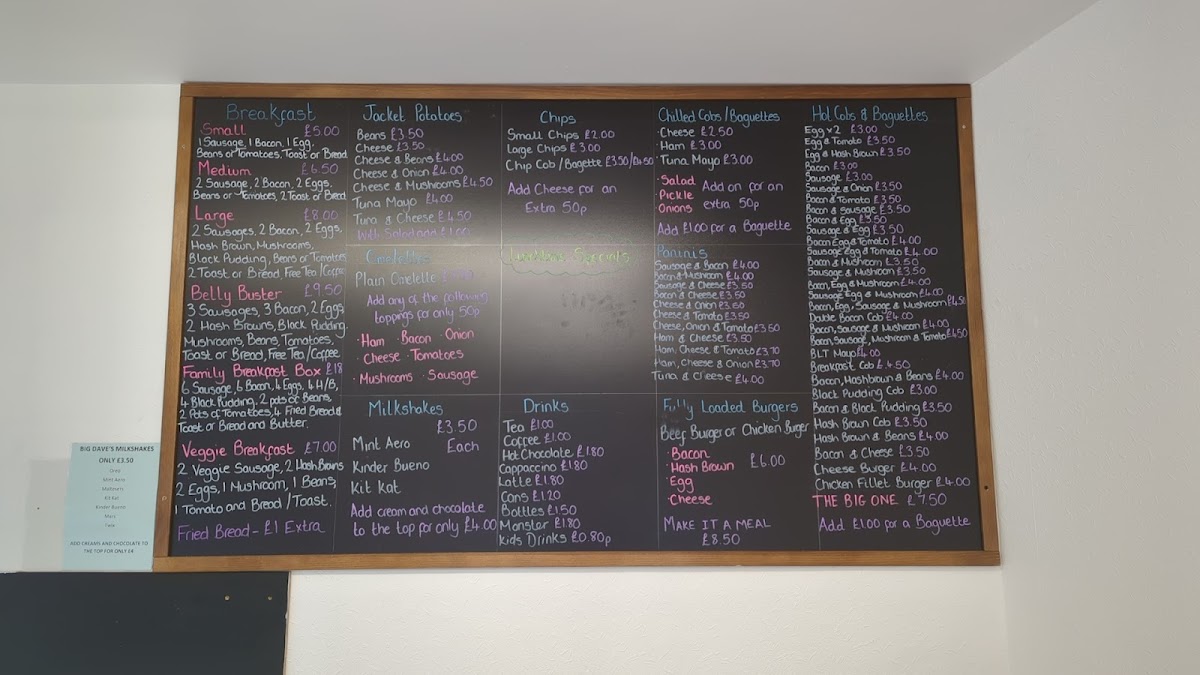 Breakfast
Small £5.00
1 Sausage, 1 Bacon, 1 Egg.
Beans or Tomatoes, Toast or Bread
Medium £6.50
2 Sausage, 2 Bacon, 2 Eggs.
Beans or Tomatoes, 2 Toast or Bread
Large £8.00
2 Sausages, 2 Bacon, 2 Eggs,
Hash Brown, Mushrooms,
Black Pudding, Beans or Tomatoes
2 Toast or Bread Free Tea/Coffee
Belly Buster £9.50
3 Sausages, 3 Bacon, 2 Eggs
2 Hash Browns, Black Pudding.
Mushrooms, Beans, Tomatoes,
Toast or Bread, Free Tea/Coffee
Family Breakfast Box £18
6 Sausage, 6 Bacon, 4 Eggs, 4 H/B,
4 Black Pudding, 2 pots of Beans,
2 Pots of Tomatoes, 4 Fried Bread &
Toast or Bread and Butter.
Veggie Breakfast £7.00
2 Veggie Sausage, 2 Hash Browns
2 Eggs, 1 Mushroom, 1 Beans,
1 Tomato and Bread / Toast.
Fried Bread - £1 Extra
Jacket Potatoes
Beans £3.50
Cheese £3.50
Cheese & Beans £4.00
Cheese & Onion £4.00
Cheese & Mushrooms £4.50
Tuna Mayo £4.00
Tuna & Cheese £4.50
With Salad add £1.00
Omelettes
Plain Omelette
Add any of the following
toppings for only 50p
· Ham · Bacon · Onion
· Cheese · Tomatoes
· Mushrooms · Sausage
Milkshakes
£3.50
Each
Mint Aero
Kinder Bueno
Kit Kat
Add cream and chocolate
to the top for only £4.00
Chips
Small Chips £2.00
Large Chips £3.00
Chip Cob/Bagette £3.50/£4.50
Add Cheese for an
Extra 50p
Specials
Drinks
Tea £1.00
Coffee £1.00
Hot Chocolate £1.80
Cappaccino £1.80
Latte £1.80
Cans £1.20
Bottles £1.50
Monster £1.80
Kids Drinks £0.80p
Chilled Cobs/Baguettes
· Cheese £2.50
· Ham £3.00
· Tuna Mayo £3.00
· Salad
Pickle
Onions
Add on for an
extra 50p
Add £1.00 for a Baguette
Paninis
Sausage & Bacon £4.00
Bacon & Mushroom £4.00
Sausage & Cheese £3.50
Bacon & Cheese £3.50
Cheese & Onion £3.50
Cheese & Tomato £3.50
Cheese, Onion & Tomato £3.50
Ham & Cheese £3.50
Ham, Cheese & Tomato £3.70
Ham, Cheese & Onion £3.70
Tuna & Cheese £4.00
Fully Loaded Burgers
Beef Burger or Chicken Burger
· Bacon
· Hash Brown
· Egg
· Cheese
£6.00
MAKE IT A MEAL
£8.50
Hot Cobs & Baguettes
Egg x 2 £3.00
Egg & Tomato £3.50
Egg & Hash Brown £3.50
Bacon £3.00
Sausage £3.00
Sausage & Onion £3.50
Bacon & Tomato £3.50
Bacon & Sausage £3.50
Bacon & Egg £3.50
Sausage & Egg £3.50
Bacon Egg & Tomato £4.00
Sausage Egg & Tomato £4.00
Bacon & Mushroom £3.50
Sausage & Mushroom £3.50
Bacon, Egg & Mushroom £4.00
Sausage Egg & Mushroom £4.00
Bacon, Egg, Sausage & Mushroom £4.50
Double Bacon Cob £4.00
Bacon, Sausage & Mushroom £4.00
Bacon, Sausage, Mushroom & Tomato £4.50
BLT Mayo £4.00
Breakfast Cob £4.50
Bacon, Hashbrown & Beans £4.00
Black Pudding Cob £3.00
Bacon & Black Pudding £3.50
Hash Brown Cob £3.50
Hash Brown & Beans £4.00
Bacon & Cheese £3.50
Cheese Burger £4.00
Chicken Fillet Burger £4.00
THE BIG ONE £7.50
Add £1.00 for a Baguette
BIG DAVE'S MILKSHAKES
ONLY £3.50
Oreo
Mint Aero
Maltesers
Kit Kat
Kinder Bueno
Mars
Twix
ADD CREAMS AND CHOCOLATE TO
THE TOP FOR ONLY £4